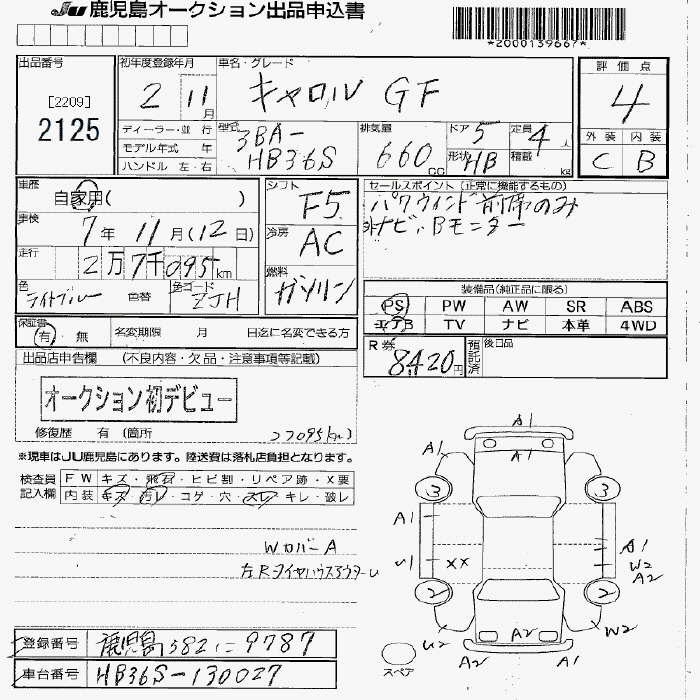 JU 鹿児島オークション出品申込書
*2000139667*
出品番号
[2209]
2125
初年度登録年月
2 11月
車名・グレード
キャロル GF
評価点
4
外装 内装
C B
ディーラー・並 行
モデル年式 年
ハンドル 左・右
型式
3BA-
HB36S
排気量
660cc
ドア 5
形状 HB
定員 4人
積載 kg
車歴
自家用( )
車検
7年 11月(12日)
走行
2万7千095km
色
ライトブルー 色替
色コード
ZJH
シフト
F5
冷房
AC
燃料
ガソリン
セールスポイント (正常に機能するもの)
パワウィンド前席のみ
非ナビ、Bモニター
装備品(純正品に限る)
PS PW AW SR ABS
エアB TV ナビ 本革 4WD
保証書
有・無
名変期限 月 日迄に名変できる方
R券
8,420円
預託済
後日品
出品店申告欄 (不良内容・欠品・注意事項等記載)
オークション初デビュー
修復歴 有 (箇所
27095km)
※現車はJU鹿児島にあります。陸送費は落札店負担となります。
検査員
記入欄
FW キズ・飛石・ヒビ割・リペア跡・X要
内装 キズ・汚レ・コゲ・穴・スレ・キレ・破レ
WカバーA
左RタイヤハウスアウターU
登録番号 鹿児島582に9787
車台番号 HB36S-130027
A1
A1
A1 A1
3 3
A1
U1 XX A1
W2
A2
2 2
U2 A2 W2
A2 A1
スペア